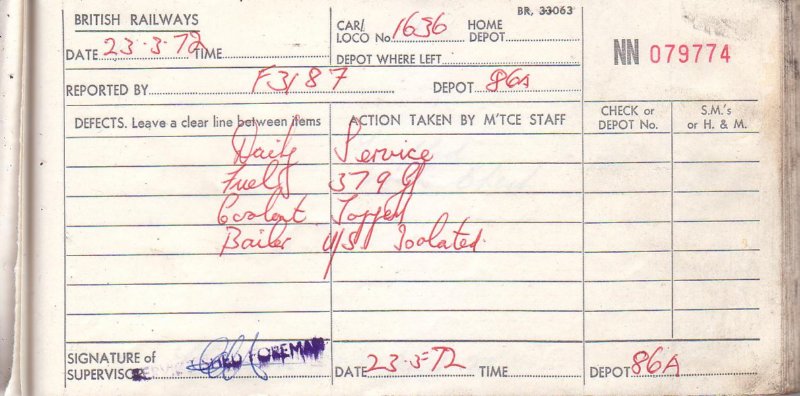 BRITISH RAILWAYS
BR, 33063
DATE 23-3-72 TIME
CAR/ LOCO No. 1636 HOME DEPOT
NN 079774
DEPOT WHERE LEFT
REPORTED BY F3187 DEPOT 86A
DEFECTS. Leave a clear line between items ACTION TAKEN BY M'TCE STAFF CHECK or DEPOT No. S.M.'s or H. & M.
Daily Service
Fuel 379 G
Coolant Topped
Boiler U/S Isolated.
SIGNATURE of SUPERVISOR FOREMAN
DATE 23-3-72 TIME DEPOT 86A